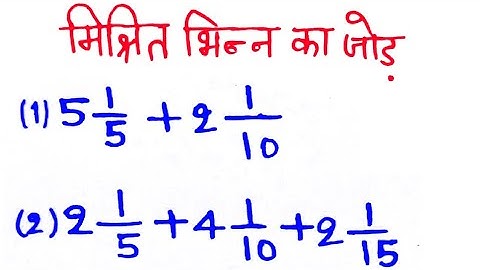 मिश्रित भिन्न का जोड़
(1) 5 1/5 + 2 1/10
(2) 2 1/5 + 4 1/10 + 2 1/15